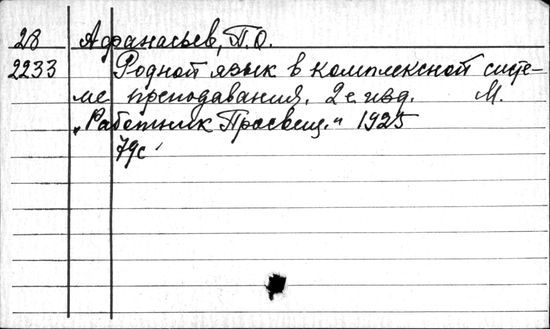 28 Афанасьев, П.О.
2233 Родной язык в комплексной систе-
ме преподавания. 2е изд. М.
„Работник Просвещ.“ 1925
79с